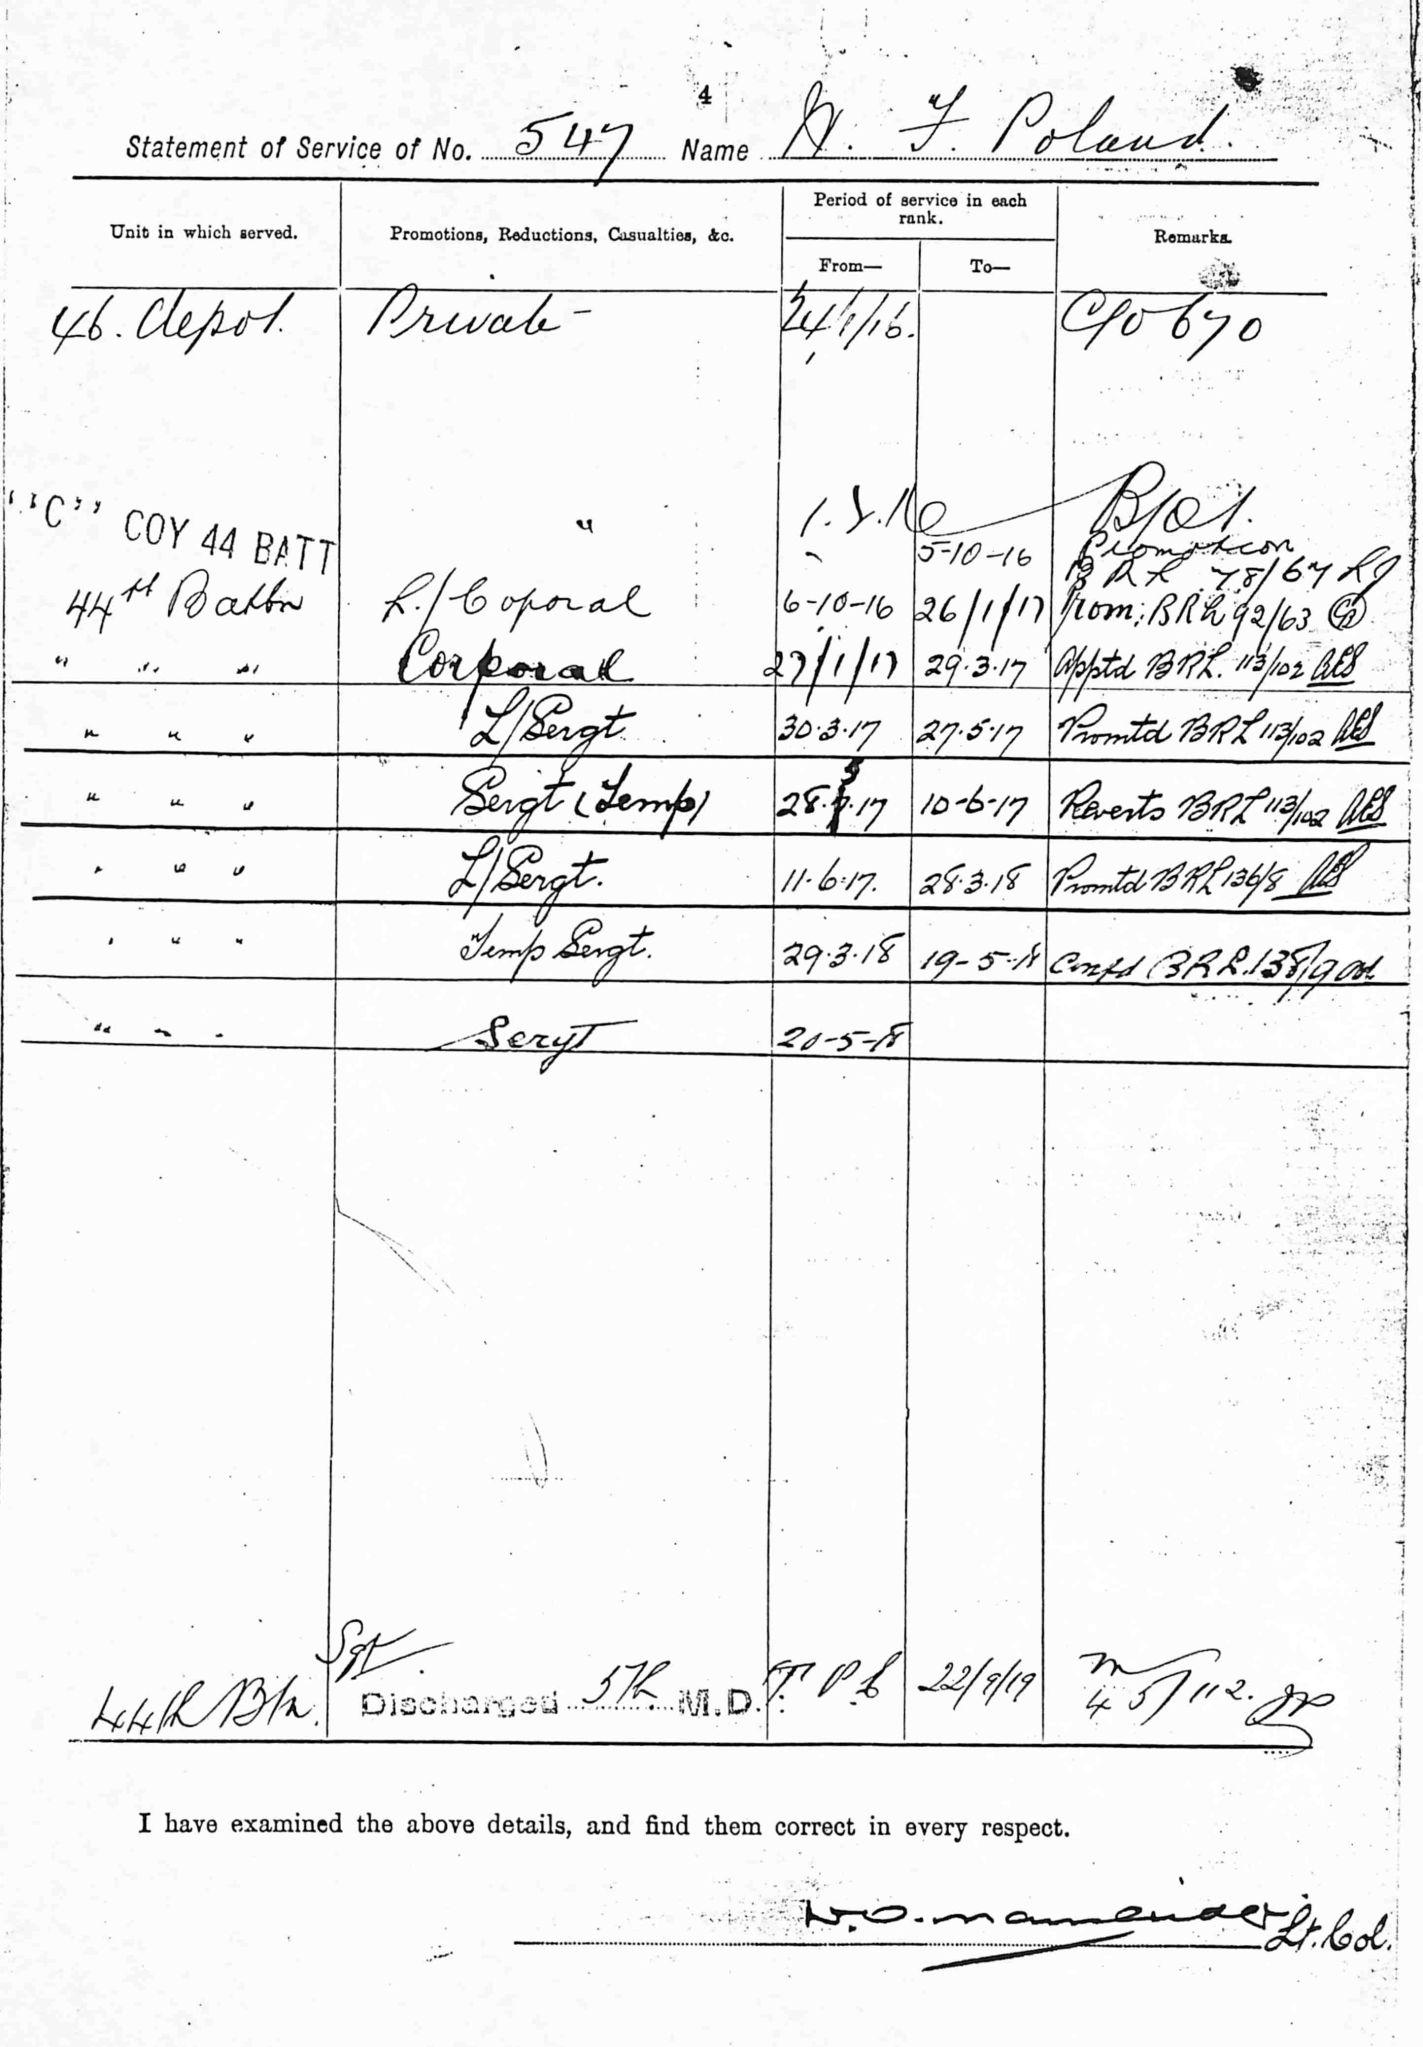 4
Statement of Service of No. 547 Name F. Poland.
Unit in which served. Promotions, Reductions, Casualties, &c. Period of service in each rank. From— To— Remarks.
46. depot. Private 24/1/16.
"C" COY 44 BATT "
5-10-16 Promotion
B R L 78/67
44th Battn L./Coporal 6-10-16 26/1/17 Prom: BRL 92/63
" " " Corporal 27/1/17 29.3.17 Apptd BRL. 113/102
" " " L/Sergt 30.3.17 27.5.17 Promtd BRL 113/102
" " " Sergt (Temp) 28.5.17 10-6-17 Reverts BRL 113/102
" " " L/Sergt. 11.6.17. 28.3.18 Promtd BRL 136/8
" " " Temp Sergt. 29.3.18 19-5-18 Confd BRL. 138/9
" " " Sergt 20-5-18
Sgt.
44th Btn. Discharged 5th M.D. 22/9/19
I have examined the above details, and find them correct in every respect.
Lt. Col.